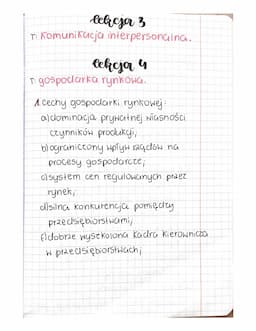 lekcja 3
T: Komunikacja interpersonalna.
lekcja 4
T: gospodarka rynkowa.
1. Cechy gospodarki rynkowej:
a) dominacja prywatnej własności
czynników produkcji;
b) ograniczony wpływ rządów na
procesy gospodarcze;
c) system cen regulowanych przez
rynek;
d) silna konkurencja pomiędzy
przedsiębiorstwami;
e) dobrze wyszkolona kadra kierownicza
w przedsiębiorstwach;